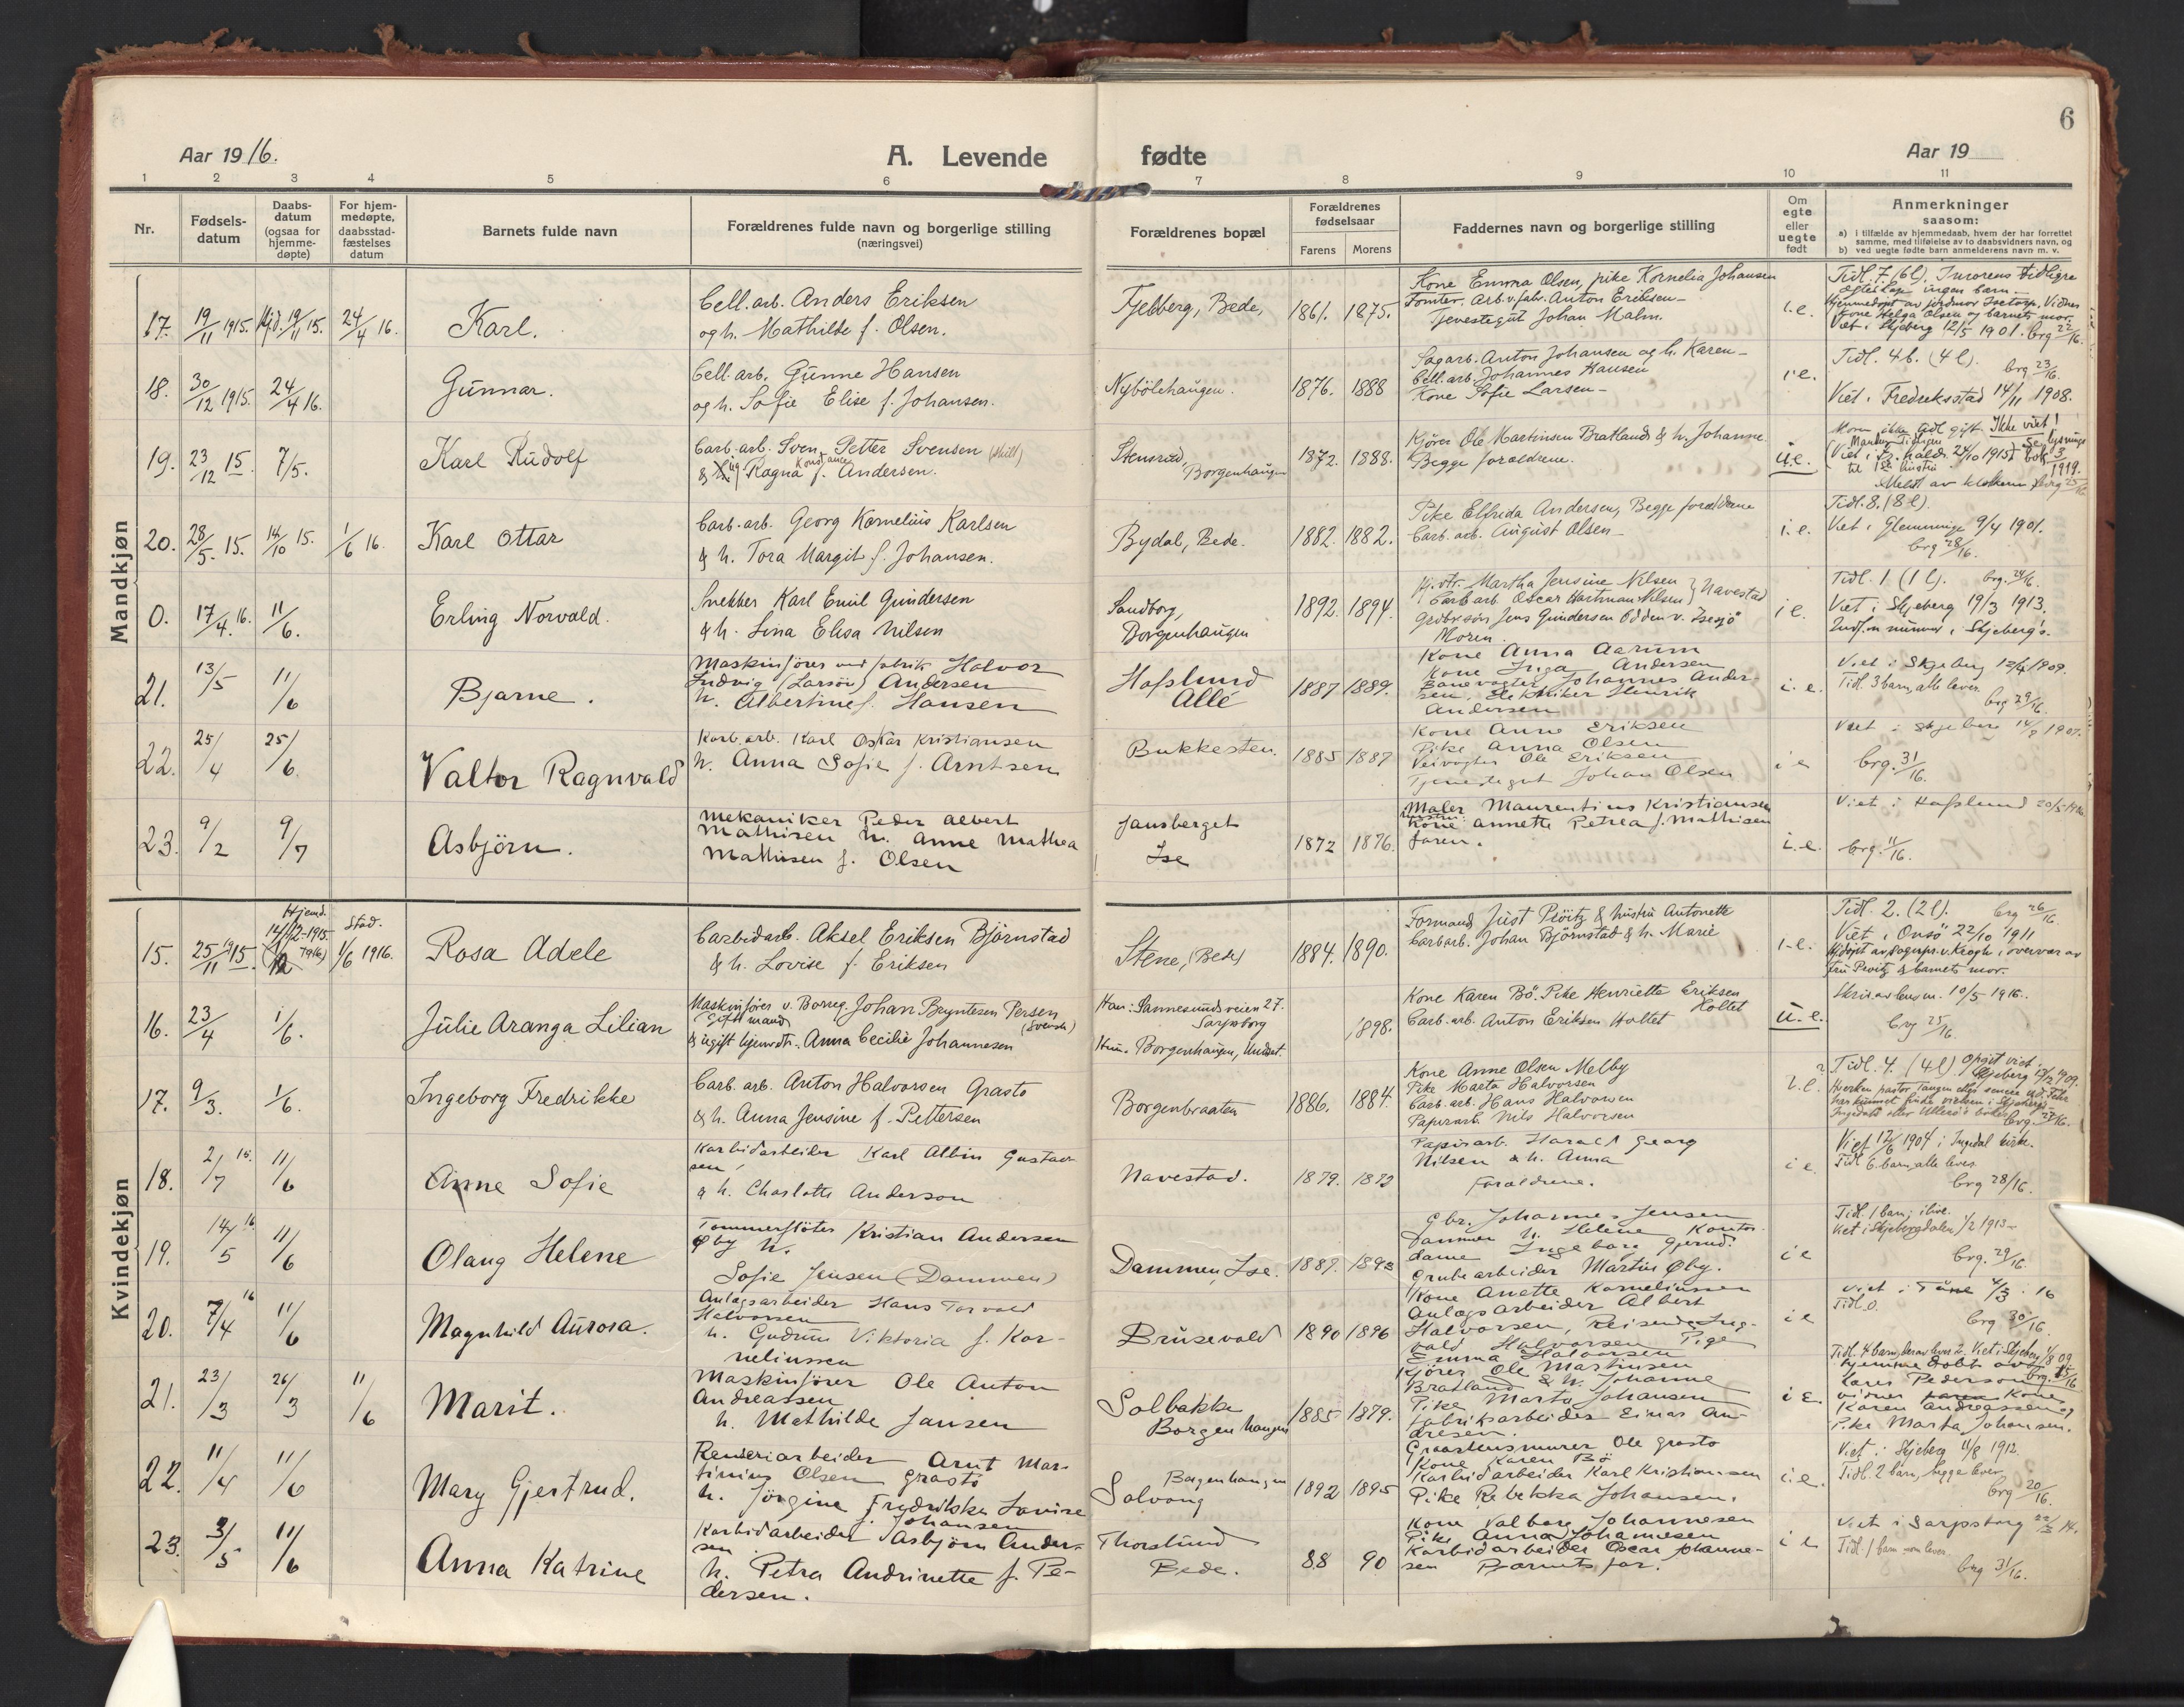 6
Aar 1916.
A. Levende fødte
Aar 19
1 2 3 4 5 6 7 8 9 10 11
Nr.
Fødsels-
datum
Daabs-
datum
(ogsaa for
hjemme-
døpte)
For hjem-
medøpte,
daabsstad-
fæstelses
datum
Barnets fulde navn
Forældrenes fulde navn og borgerlige stilling
(næringsvei)
Forældrenes bopæl
Forældrenes
fødselsaar
Farens Morens
Faddernes navn og borgerlige stilling
Om
egte
eller
uegte
født
Anmerkninger
saasom:
a) i tilfælde av hjemmedaab, hvem der har forrettet
samme, med tilføielse av to daabsvidners navn, og
b) ved uegte fødte barn anmelderens navn m. v.
Mandkjøn
17. 19/11 1915. Hjd. 19/11 15. 24/4 16.
Karl.
Cell.arb. Anders Eriksen
og h. Mathilde f. Olsen.
Fjelberg, Bede, 1861. 1875.
Kone Emma Olsen, pike Kornelia Johansen
Tomter. Arb. v. fabr. Anton Eriksen
Tjenestegut Johan Malm.
i.e.
Tidl. 7 (6 l).
ingen barn
Kone Helga Olsen og barnets mor.
Viet i Skjeberg 12/5 1901. brg 22/16.
18. 30/12 1915. 24/4 16.
Gunnar.
Cell.arb. Gunne Hansen
og h. Sofie Elise f. Johansen.
Nybölehaugen. 1876. 1888
Sagarb. Anton Johansen og h. Karen
Cell.arb. Johannes Hansen
Kone Sofie Larsen
i.e.
Tidl. 4 b. (4 l). brg 23/16.
Viet i Fredriksstad 14/11 1908.
19. 23/12 15. 7/5.
Karl Rudolf
Carb.arb. Sven Petter Svensen (skilt)
& Ragna Konstance f. Andersen.
Stensrud, Borgenhaugen 1872. 1888.
Kjörer Ole Martinsen Bratland & h. Johanne
Begge forældrene.
u.e.
Moren ikke tidl. gift. Ikke viet!
1919.
20. 28/5 15. 14/10 15. 1/6 16.
Karl Ottar
Carb.arb. Georg Kornelius Karlsen
& h. Tora Margit f. Johansen.
Bydal, Bede. 1882. 1882.
Pike Elfrida Andersen, Begge forældrene
Carb. arb. August Olsen
i.e.
Tidl. 8. (8 l)
Viet i Glemminge 9/4 1901.
brg 28/16.
0. 17/4 16. 11/6.
Erling Norvald.
Snekker Karl Emil Gundersen
& h. Lina Elisa Nilsen
Sandborg, Borgenhaugen 1892. 1894.
Hj.dtr. Martha Jensine Nilsen
Carb.arb. Oscar Hartman Nilsen } Navestad
Gbrsön Jens Gundersen Odden v. Isesjö
Moren.
i e.
Tidl. 1. (1 l). brg. 24/16.
Viet i Skjeberg 19/3 1913.
21. 13/5 11/6
Bjarne.
Maskinförer ved fabrik Halvor
Ludvig (Larsön) Andersen
h. Albertine f. Hansen
Hafslund Allé 1887. 1889.
Kone Anna Aarum
Kone Inga Andersen
Banevogter Johannes Ander-
sen, Elektriker Henrik
Andersen
i.e.
Viet i Skjeberg 12/4 1909.
Tidl. 3 barn, alle lever.
brg 29/16.
22. 25/4 25/6
Valtor Ragnvald
Karb.arb. Karl Oskar Kristiansen
h. Anna Sofie f. Arntsen
Bukkesten. 1885 1887
Kone Anne Eriksen
Pike Anna Olsen
Veivogter Ole Eriksen
Tjenestegut Johan Olsen
i e
Viet i Skjeberg 1907.
brg. 31/16.
23. 9/2 9/7
Asbjörn.
Mekaniker Peder Albert
Mathisen h. Anne Mathea
Mathisen f. Olsen
Jansberget Ise 1872 1876.
Maler Maurentius Kristiansen
Kone Annette Petrea f. Mathisen
faren.
i.e.
Viet i Hafslund
brg. 11/16.
Kvindekjøn
15. 25/11 1915. Hjemd. 12/12-1915 Stad. 1/6 1916.
Rosa Adele
Carbidarb. Aksel Eriksen Björnstad
& h. Lovise f. Eriksen
Stene, (Bede) 1884. 1890.
Formand Just Pröitz & hustru Antonette
Carbarb. Johan Björnstad & h. Marie
i.e.
Tidl. 2. (2 l). brg 26/16.
Viet i Onsö 22/10 1911
Hjdöpt av sognpr. v. Krogh i overvær av
fru Pröitz & barnets mor.
16. 23/4 1/6.
Julie Aranga Lilian
Maskinförer v. Borreg. Johan Bryntesen Persen
Gift mand (Svensk)
& ugift hjemdtr. Anna Cecilie Johannesen
Han: Sannesundsveien 27. Sarpsborg
Hun. Borgenhaugen, Undset. 1898.
Kone Karen Bö. Pike Henriette Eriksen Holtet
Carb.arb. Anton Eriksen Holtet
u.e.
Skriv. av lensm. 10/5 1916.
brg 25/16.
17. 9/3. 1/6.
Ingeborg Fredrikke
Carb. arb. Anton Halvorsen Grasto
& h. Anna Jensine f. Pettersen
Borgenbraaten 1886. 1884.
Kone Anne Olsen Melby
Pike Marta Halvorsen
Carb.arb. Hans Halvorsen
Papirarb. Nils Halvorsen
i.e.
Tidl. 4. (4 l) Opgit viet i
Skjeberg 1909.
brg. 27/16.
18. 2/7 15. 11/6
Anne Sofie
Karbidarbeider Karl Albin Gustav-
sen
& h. Charlotte Anderson
Navestad. 1879. 1873
Papirarb. Harald Georg
Nilsen & h. Anna
Forældrene.
i e.
Viet 12/6 1904 i Ingedal kirke.
Tidl. 6 barn, alle lever.
brg 28/16.
19. 14/5 16 11/6
Olaug Helene
Tømmerfløter Kristian Andersen
Øby h.
Sofie Jensen (Dammen)
Dammen, Ise. 1889. 1893
Gbr. Johannes Jensen
Dammen h. Helene Kontor-
dame Ingeborg
Grubearbeider Martin Øby.
i e
Tidl. 1 barn, ilive.
Viet i Skjebergdalen 1/2 1913
brg. 29/16.
20. 7/4 16 11/6
Magnhild Aurora.
Anlægsarbeider Hans Torvald
Halvorsen
h. Gudrun Viktoria f. Kor-
neliussen
Brusevold 1890 1896
Kone Anette Korneliussen
Anlægsarbeider Albert
Halvorsen, Reisende Ing-
vald Halvorsen Pige
Emma Halvorsen
i e
Viet i Tune 4/3. 16
Tidl. 0.
brg 30/16.
21. 23/3 26/3 11/6
Marit.
Maskinförer Ole Anton
Andreassen
h. Mathilde Jansen
Solbakke Borgenhaugen 1885 1879.
Kjörer Ole Martinsen
Bratland & h. Johanne
Pike Marta Johansen
Fabriksarbeider Einar An-
dresen.
i e.
Tidl. 4 barn, herav lever 2. Viet i Skjeberg
Hjemmedöbt av
Kone
Karen Andreassen og
Pike Marta Johansen.
22. 11/4 11/6
Mary Gjertrud.
Renseriarbeider Arnt Mar-
tinius Olsen Grasto
h. Jörgine Fredrikke Lovise
f. Johansen
Borgenhaugen Solvang 1892 1895
Graastensmurer Ole Grasto
Kone Karen Bö
Karbidarbeider Karl Kristiansen
Pike Rebekka Johansen.
i.e.
Viet i Skjeberg 1912.
Tidl. 2 barn, begge lever.
brg 20/16.
23. 3/5 11/6
Anna Katrine
Karbidarbeider Asbjörn Ander-
sen
h. Petra Andrinette f. Pe-
dersen.
Thorslund Bede. 88 90
Kone Valborg Johannesen
Pike Anna Johannesen
Karbidarbeider Oscar Johanne-
sen Barnets far.
i e
Viet i Sarpsborg 22/3 14.
Tidl. 1 barn som lever.
brg 31/16.